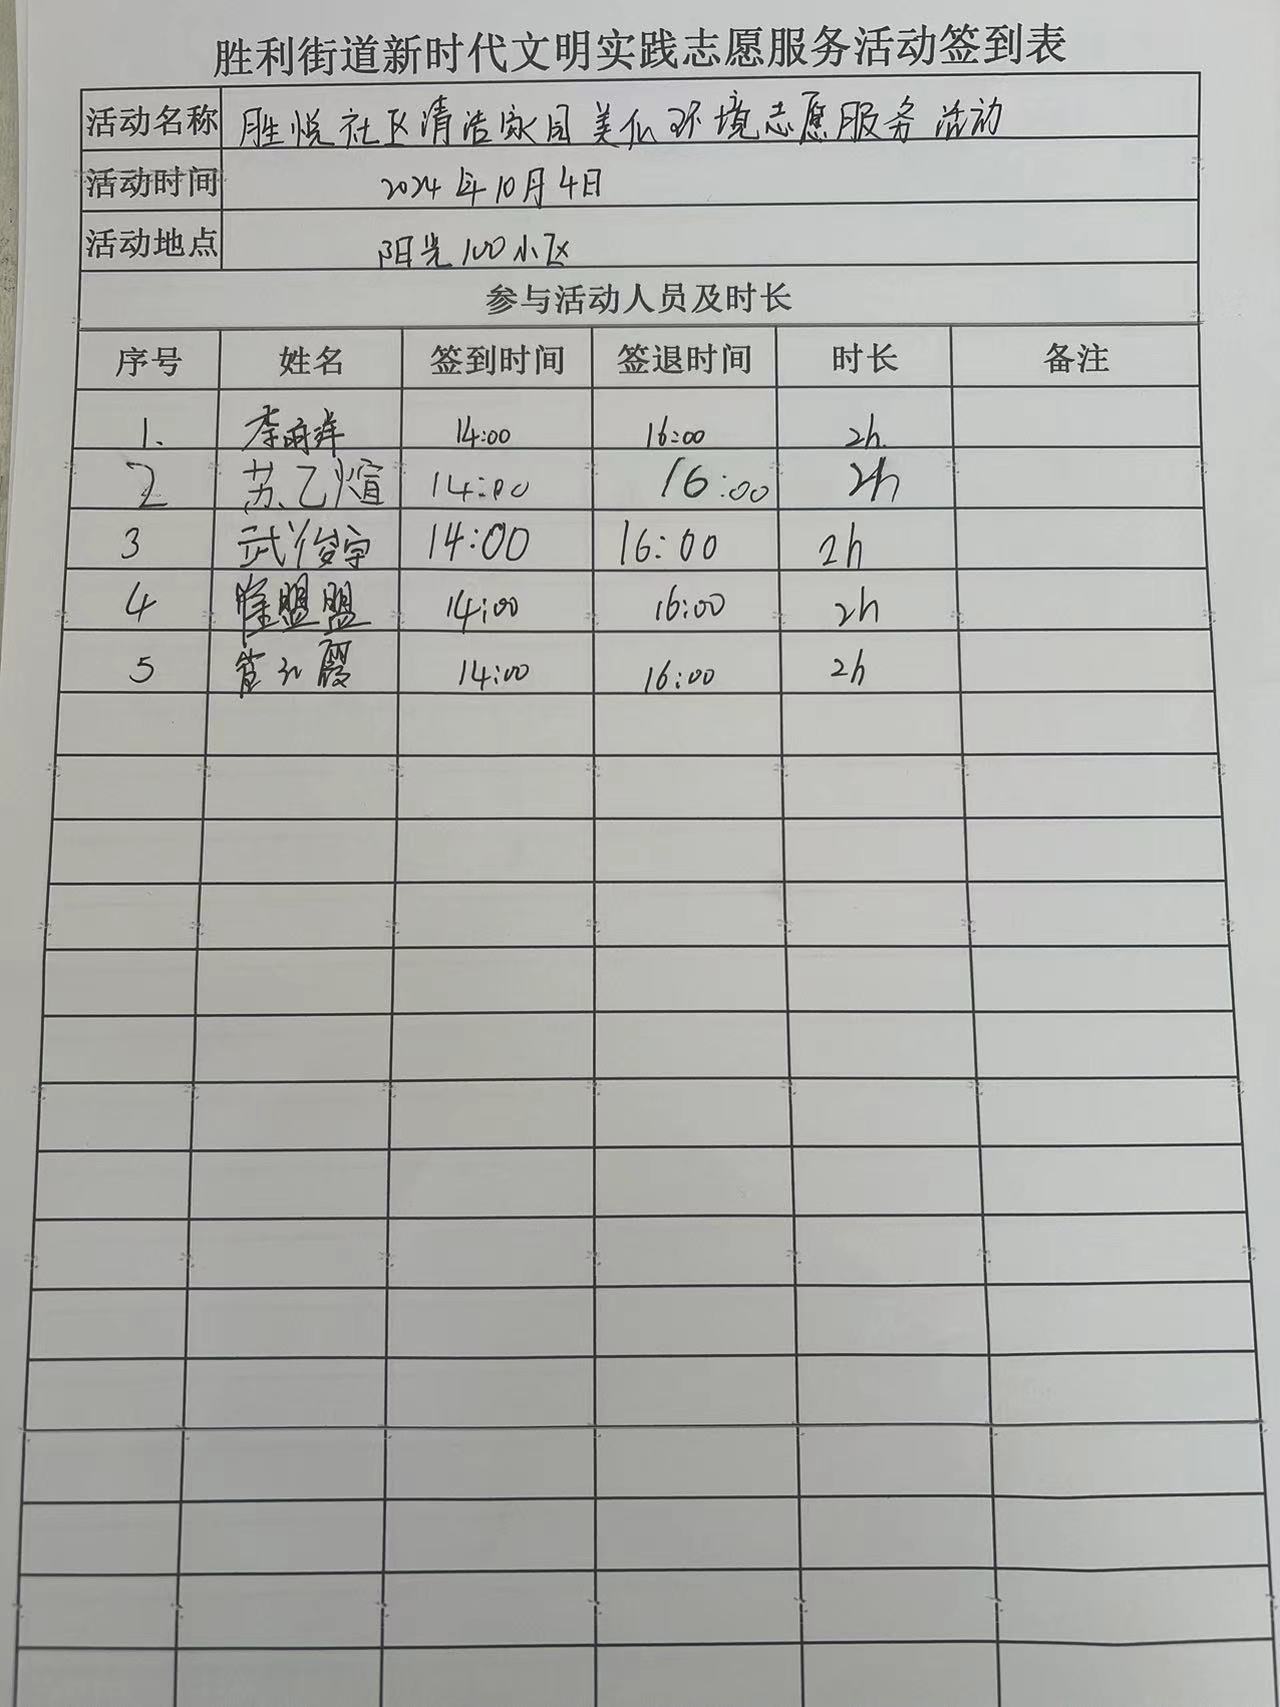 胜利街道新时代文明实践志愿服务活动签到表
活动名称 胜悦社区清洁家园美化环境志愿服务活动
活动时间 2024年10月4日
活动地点 阳光100小区
参与活动人员及时长
序号 姓名 签到时间 签退时间 时长 备注
1. 李雨洋 14:00 16:00 2h.
2 苏乙煊 14:00 16:00 2h
3 武俊宇 14:00 16:00 2h
4 盟盟 14:00 16:00 2h
5 霞 14:00 16:00 2h